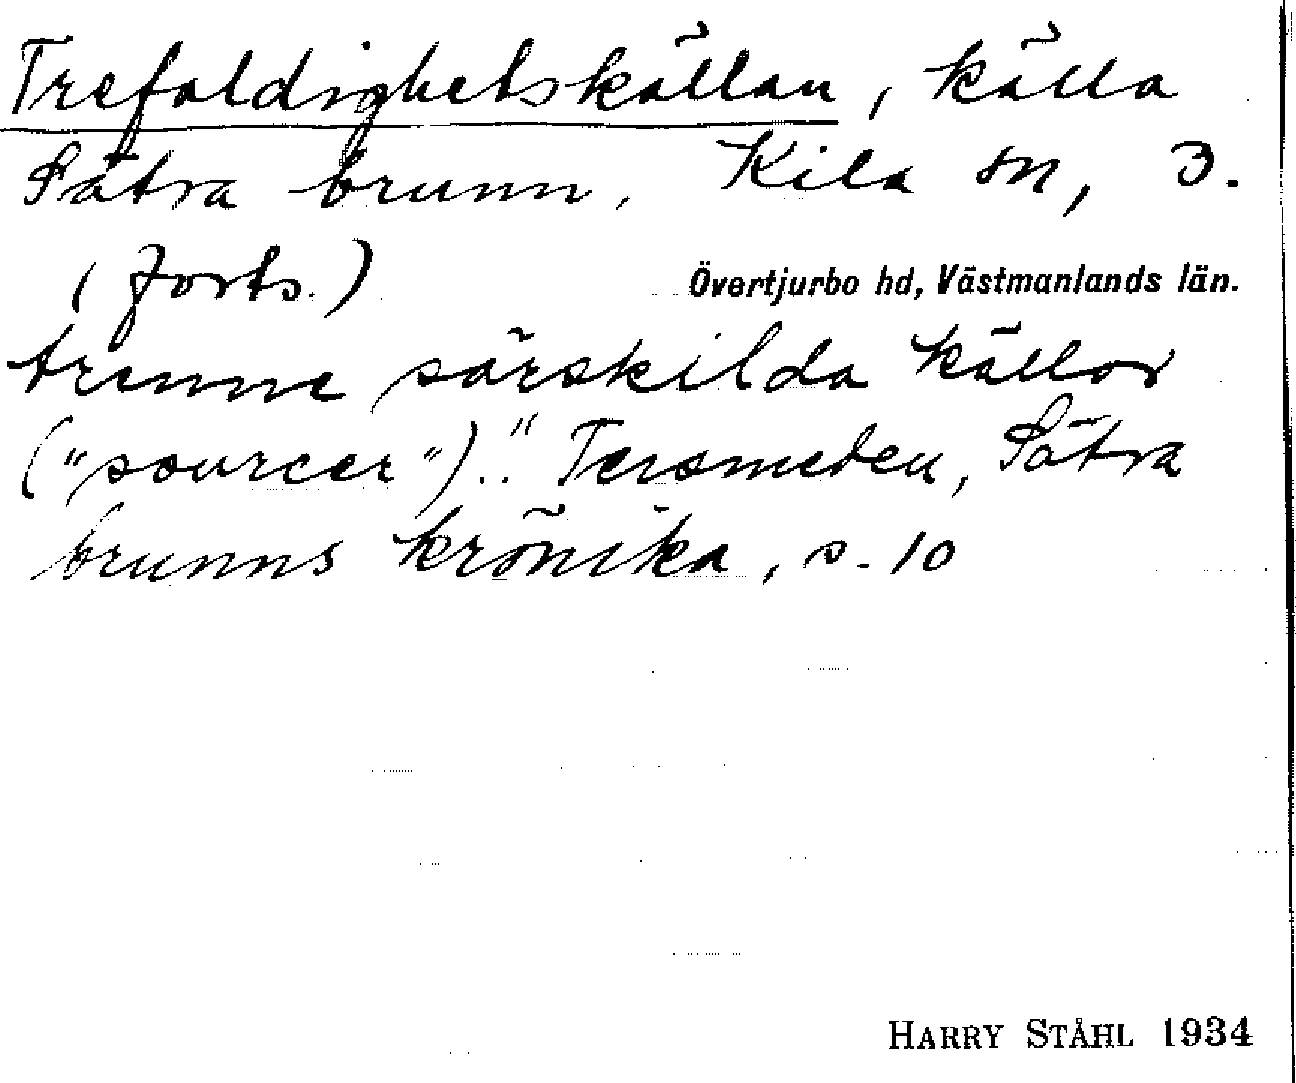 Trefaldighetskällan, källa
Sätra brunn, Kila sn, 3.
(forts.)
Övertjurbo hd, Västmanlands län.
trenne särskilda källor
("sourcer").." Tersmeden, Sätra
brunns krönika, s. 10
HARRY STÅHL 1934